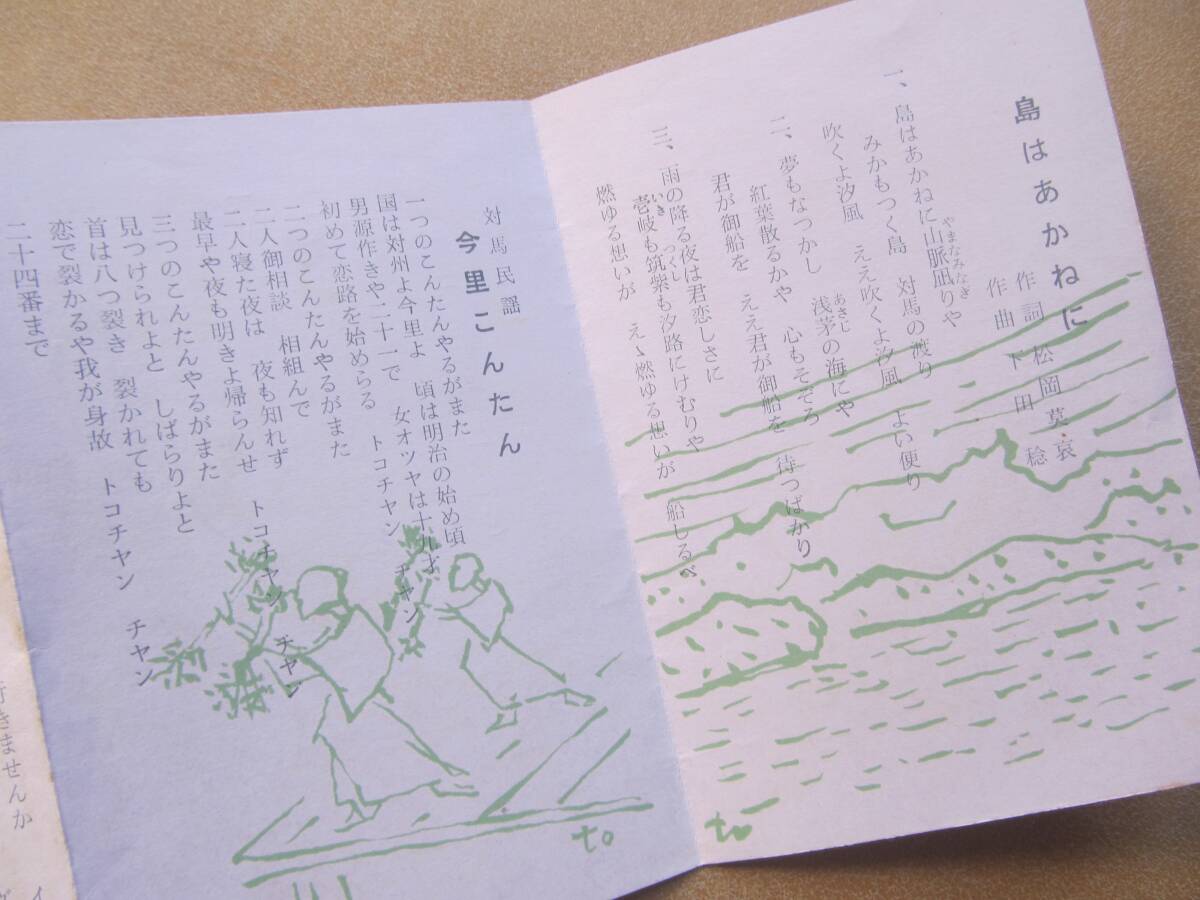 島はあかねに
作詞 松岡莫哀
作曲 下田稔
一、島はあかねに山脈凪りや
やまなみなぎ
みかもつく島 対馬の渡り
吹くよ汐風 ええ吹くよ汐風 よい便り
二、夢もなつかし 浅茅の海にや
あさじ
紅葉散るかや 心もそぞろ
君が御船を ええ君が御船を 待つばかり
三、雨の降る夜は君恋しさに
壱岐も筑紫も汐路にけむりや
いき つくし
燃ゆる想いが えゝ燃ゆる想いが 船しるべ
対馬民謡
今里こんたん
一つのこんたんやるがまた
国は対州よ今里よ 頃は明治の始め頃
男源作きや二十一で 女オツヤは十九才
初めて恋路を始めらる トコチヤン チヤン
二つのこんたんやるがまた
二人御相談 相組んで
二人寝た夜は 夜も知れず
最早や夜も明きよ帰らんせ トコチヤン チヤン
三つのこんたんやるがまた
見つけられよと しばらりよと
首は八つ裂き 裂かれても
恋で裂かるや我が身故 トコチヤン チヤン
二十四番まで
to
to
行きませんか